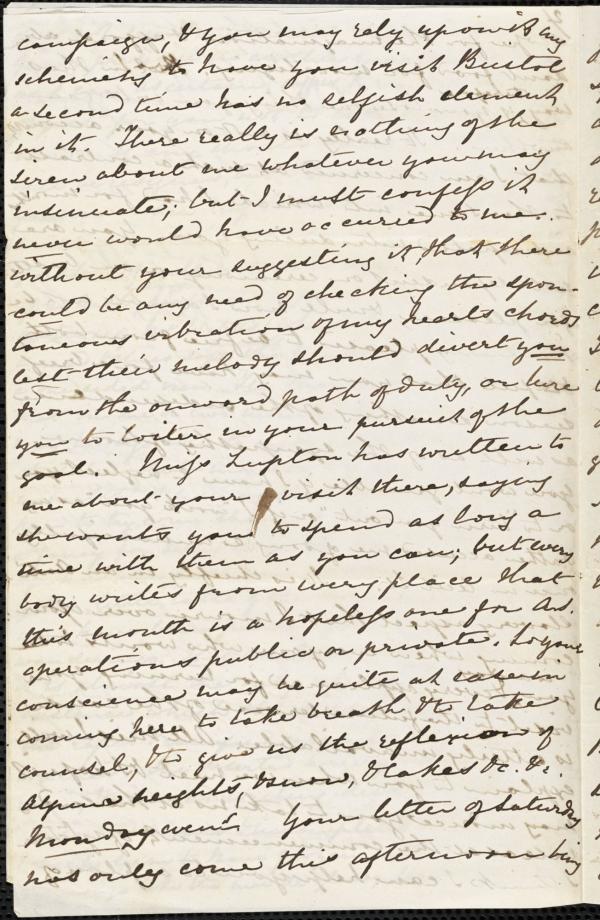 campaign, & you may rely upon it any
scheming to have you visit Bristol
a second time has no selfish element
in it. There really is nothing of the
siren about me whatever you may
insinuate; but I must confess it
never would have occurred to me
without your suggesting it, that there
could be any need of checking the spon-
taneous vibration of my heart's chords
lest their melody should divert you
from the onward path of duty, or lure
you to loiter in your pursuit of the
goal. Miss Lupton has written to
me about your visit there, saying
she wants you to spend as long a
time with them as you can; but every
body writes from every place that
this month is a hopeless one for A.S.
operations public or private. So your
conscience may be quite at ease in
coming here to take breath & to take
counsel, & to give us the reflexion of
Alpine heights, & snow, & lakes &c. &c.
Monday even.g Your letter of Saturday
has only come this afternoon